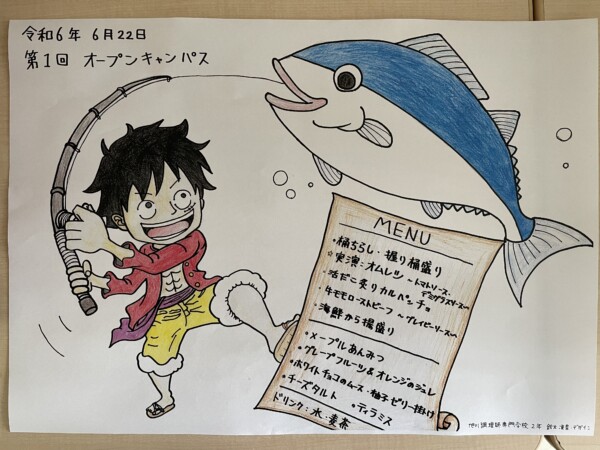 令和6年 6月22日
第1回 オープンキャンパス
MENU
・桶ちらし・握り桶盛り
☆実演：オムレツ ~トマトソース、
デミグラスソース~
・活だこ炙りカルパッチョ
・牛モモローストビーフ ~グレイビーソース~
・海鮮から揚盛り
・メープルあんみつ
・グレープフルーツ&オレンジのジュレ
・ホワイトチョコのムース：柚子ゼリー掛け
・チーズタルト ・ティラミス
ドリンク：水・麦茶
調理師専門学校 2年 デザイン